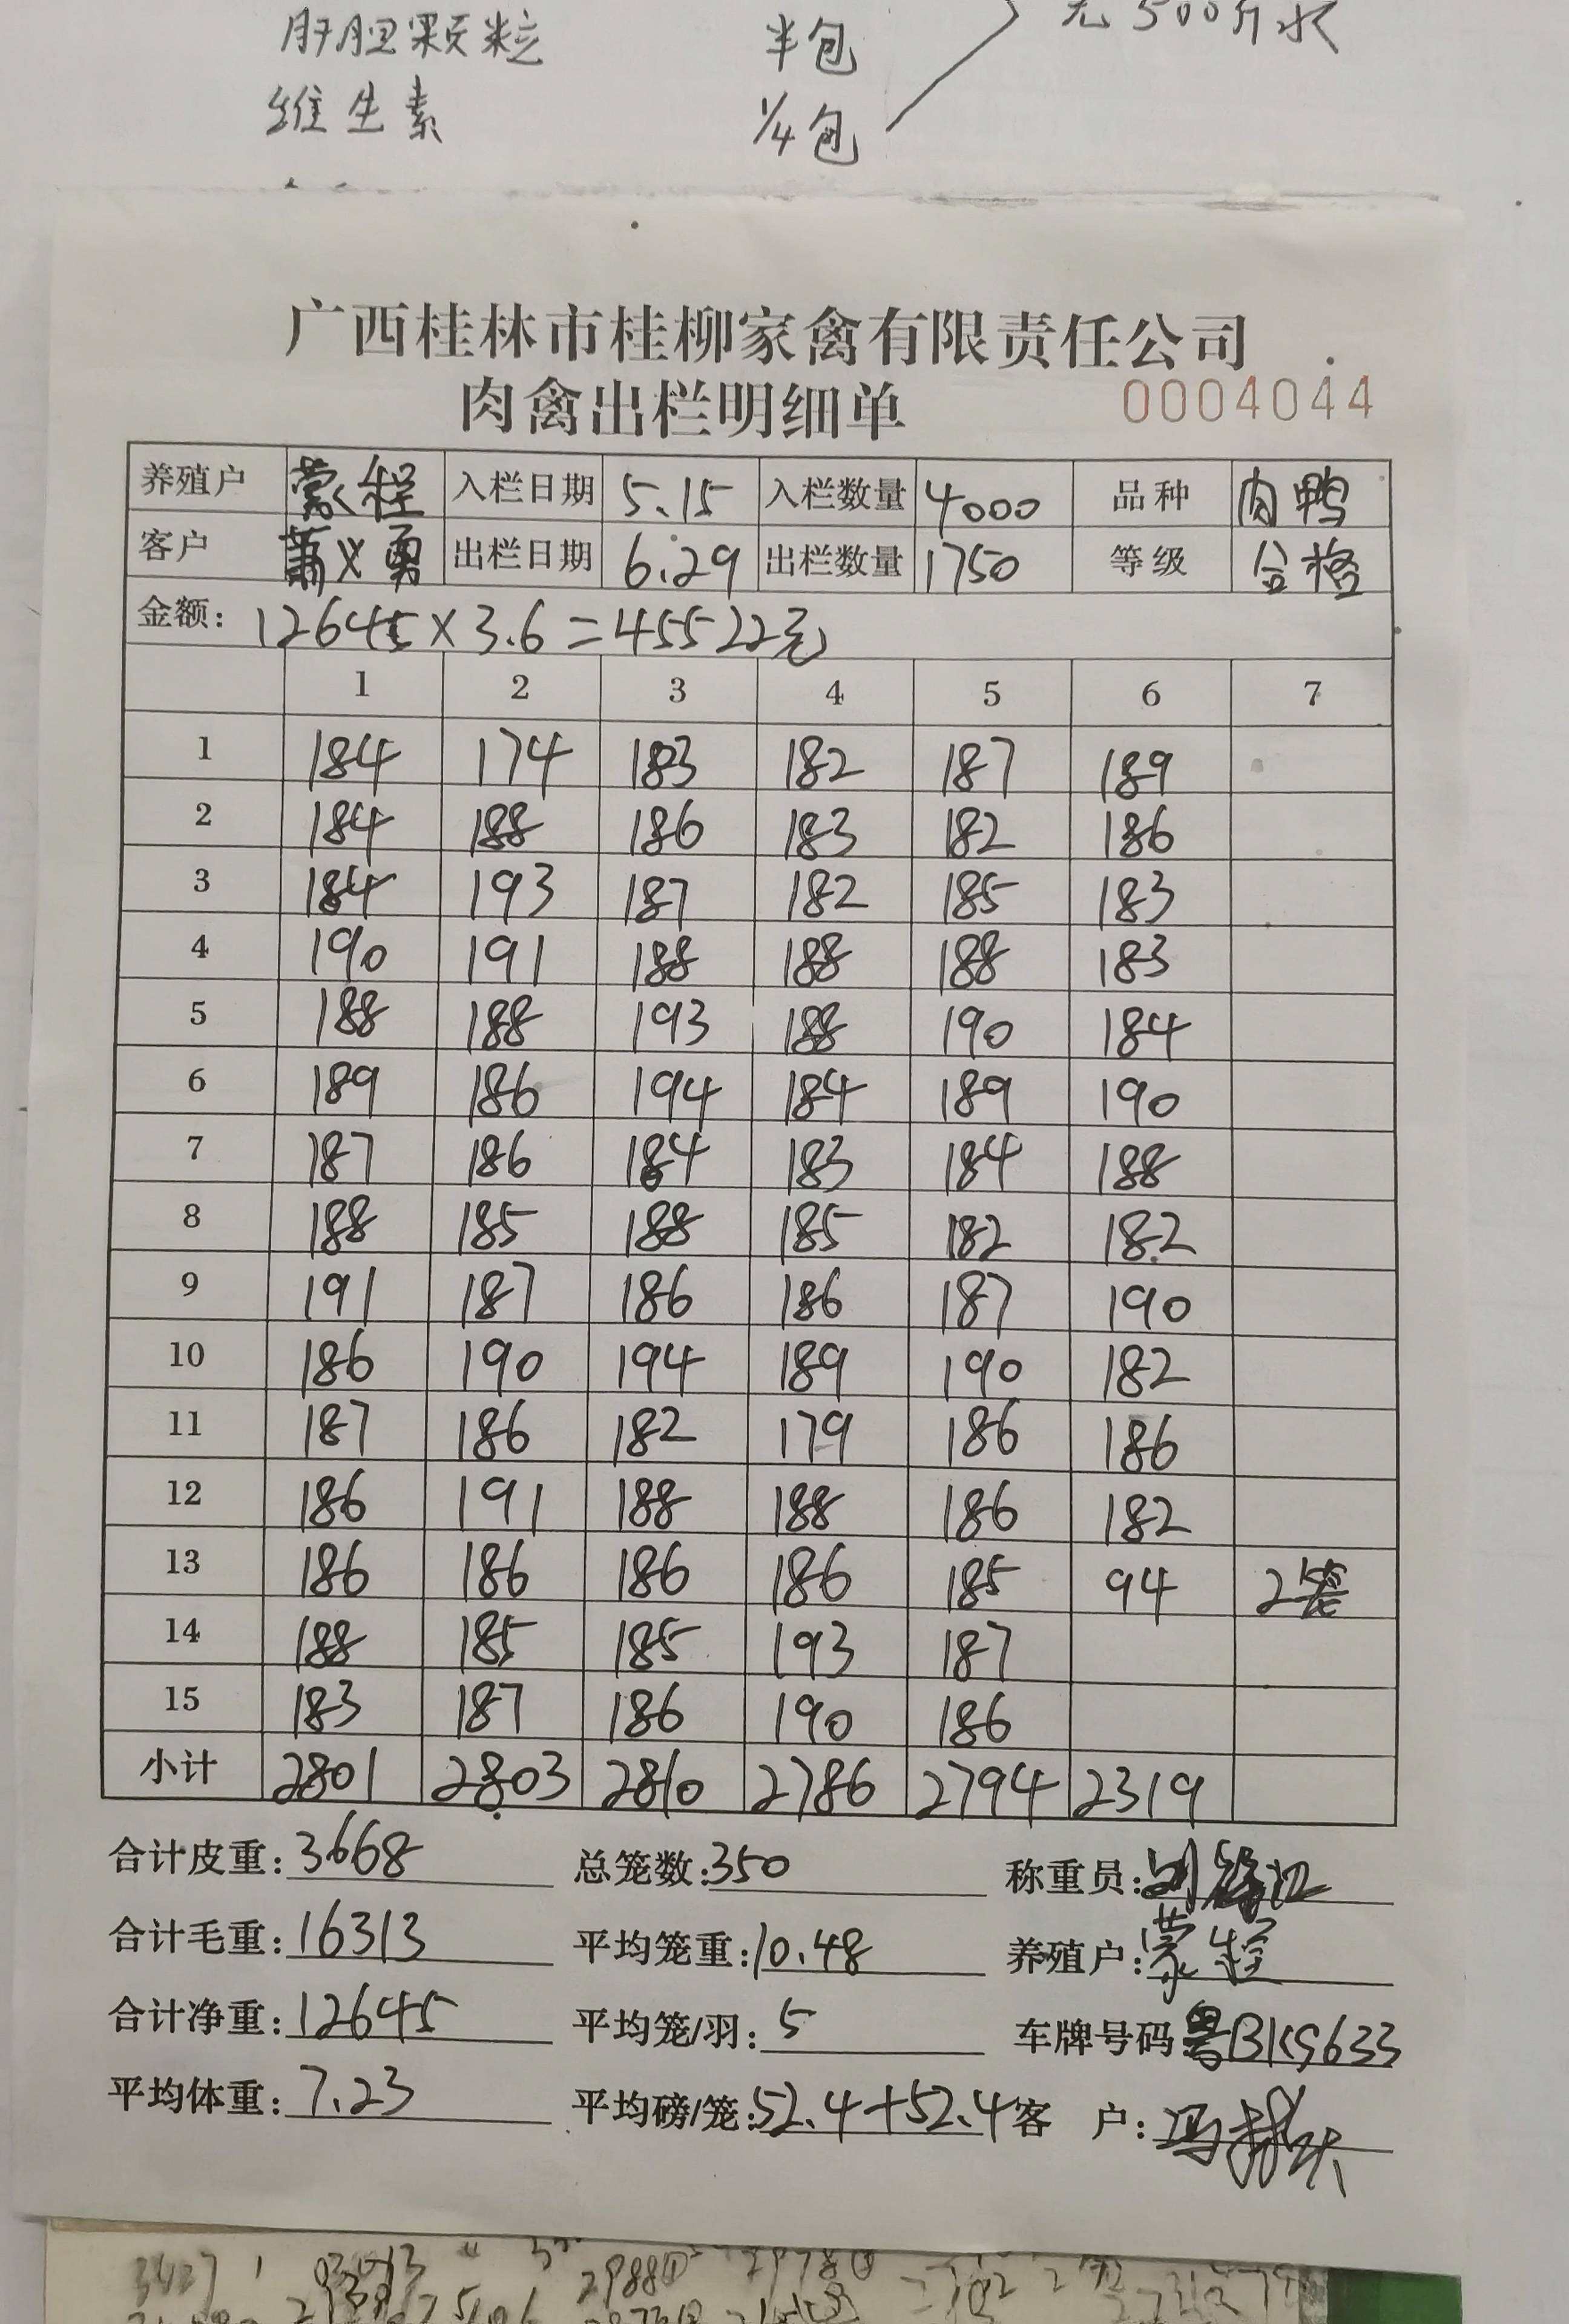 肝胆颗粒 半包 兑500斤水
维生素 1/4包
广西桂林市桂柳家禽有限责任公司
肉禽出栏明细单 0004044
养殖户 蒙程 入栏日期 5.15 入栏数量 4000 品种 肉鸭
客户 萧义勇 出栏日期 6.29 出栏数量 1750 等级 合格
金额: 12645×3.6=45522元
1 2 3 4 5 6 7
1 184 174 183 182 187 189
2 184 188 186 183 182 186
3 184 193 187 182 185 183
4 190 191 188 188 188 183
5 188 188 193 188 190 184
6 189 186 194 184 189 190
7 187 186 184 183 184 188
8 188 185 188 185 182 182
9 191 187 186 186 187 190
10 186 190 194 189 190 182
11 187 186 182 179 186 186
12 186 191 188 188 186 182
13 186 186 186 186 185 94 2
14 188 185 185 193 187
15 183 187 186 190 186
小计 2801 2803 2810 2786 2794 2319
合计皮重: 3668 总笼数: 350 称重员:
合计毛重: 16313 平均笼重: 10.48 养殖户: 蒙程
合计净重: 12645 平均笼/羽: 5 车牌号码: 粤BKS633
平均体重: 7.23 平均磅/笼: 52.4+52.4 客 户: